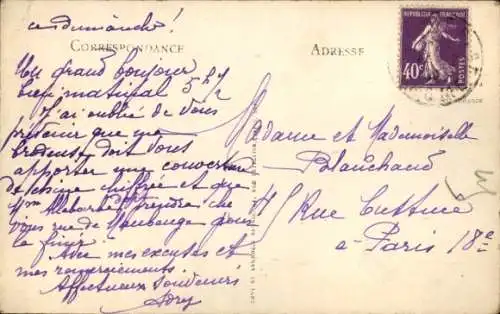 ce dimanche!
CORRESPONDANCE
Un grand bonjour
bien matinal 5 h 1/2
J'ai oublié de vous
prévenir que ma
brodeuse doit vous
apporter une couverture
de chine chiffrée et que
Mme
vous rue de Maubeuge pour
la finir.
Avec mes excuses et
mes remerciements.
Affectueux souvenirs
ADRESSE
REPUBLIQUE FRANÇAISE
40c
POSTES
Madame et Mademoiselle
Blanchaud
45 Rue Custine
a Paris 18e